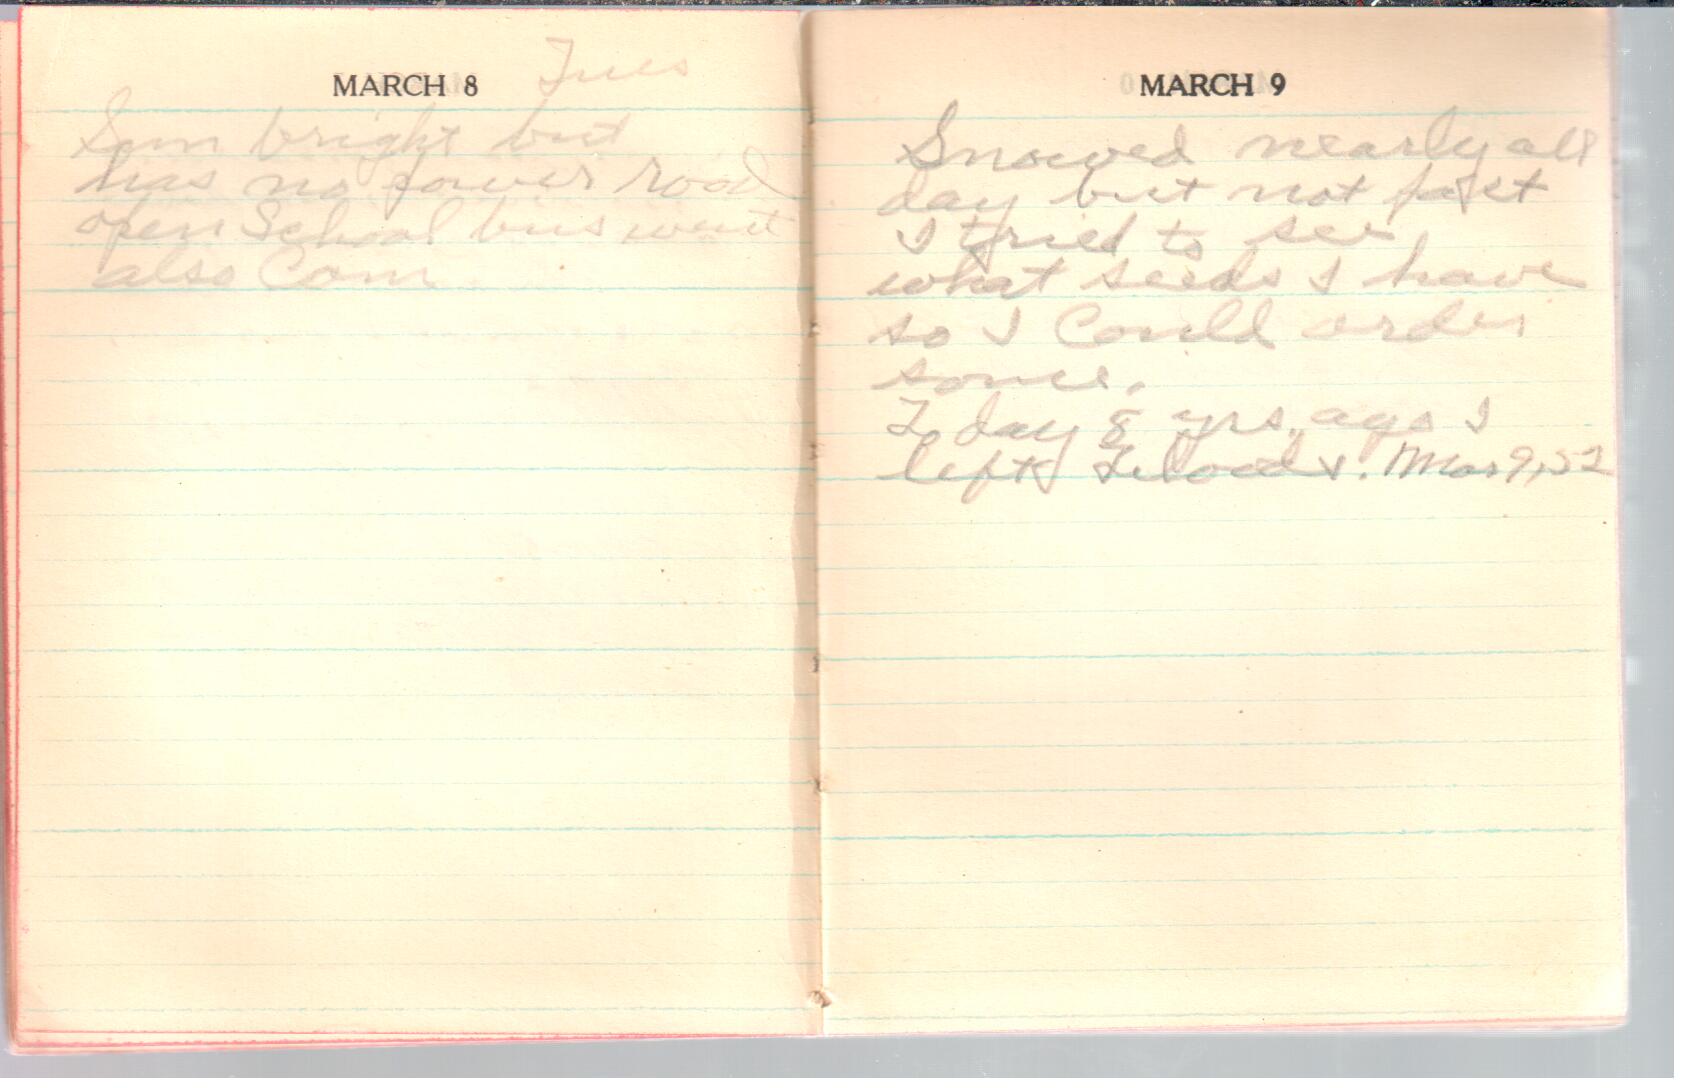 MARCH 8 Tues
Sun bright but
has no power road
open School bus went
also Com
MARCH 9
Snowed nearly all
day but not fast
I tried to see
what seeds I have
so I Could order
some.
To day 8 yrs, ago I
left Mar 9, 52